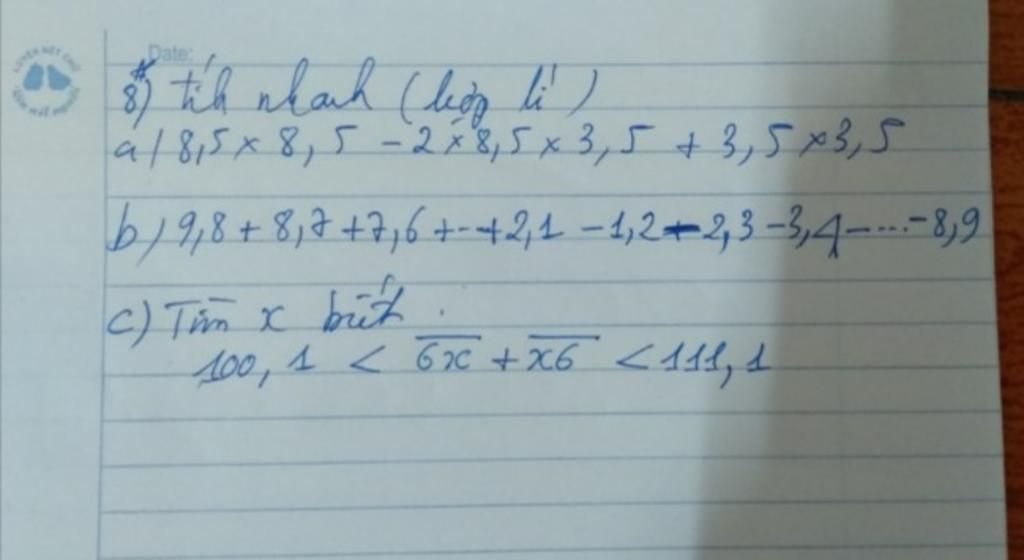 Date:
LUYỆN NÉT CHỮ
8) Tính nhanh (hợp lí)
a) 8,5 × 8,5 - 2 × 8,5 × 3,5 + 3,5 × 3,5
b) 9,8 + 8,7 + 7,6 + ... + 2,1 - 1,2 - 2,3 - 3,4 - .... - 8,9
c) Tìm x biết.
100,1 < \overline{6x} + \overline{x6} < 111,1